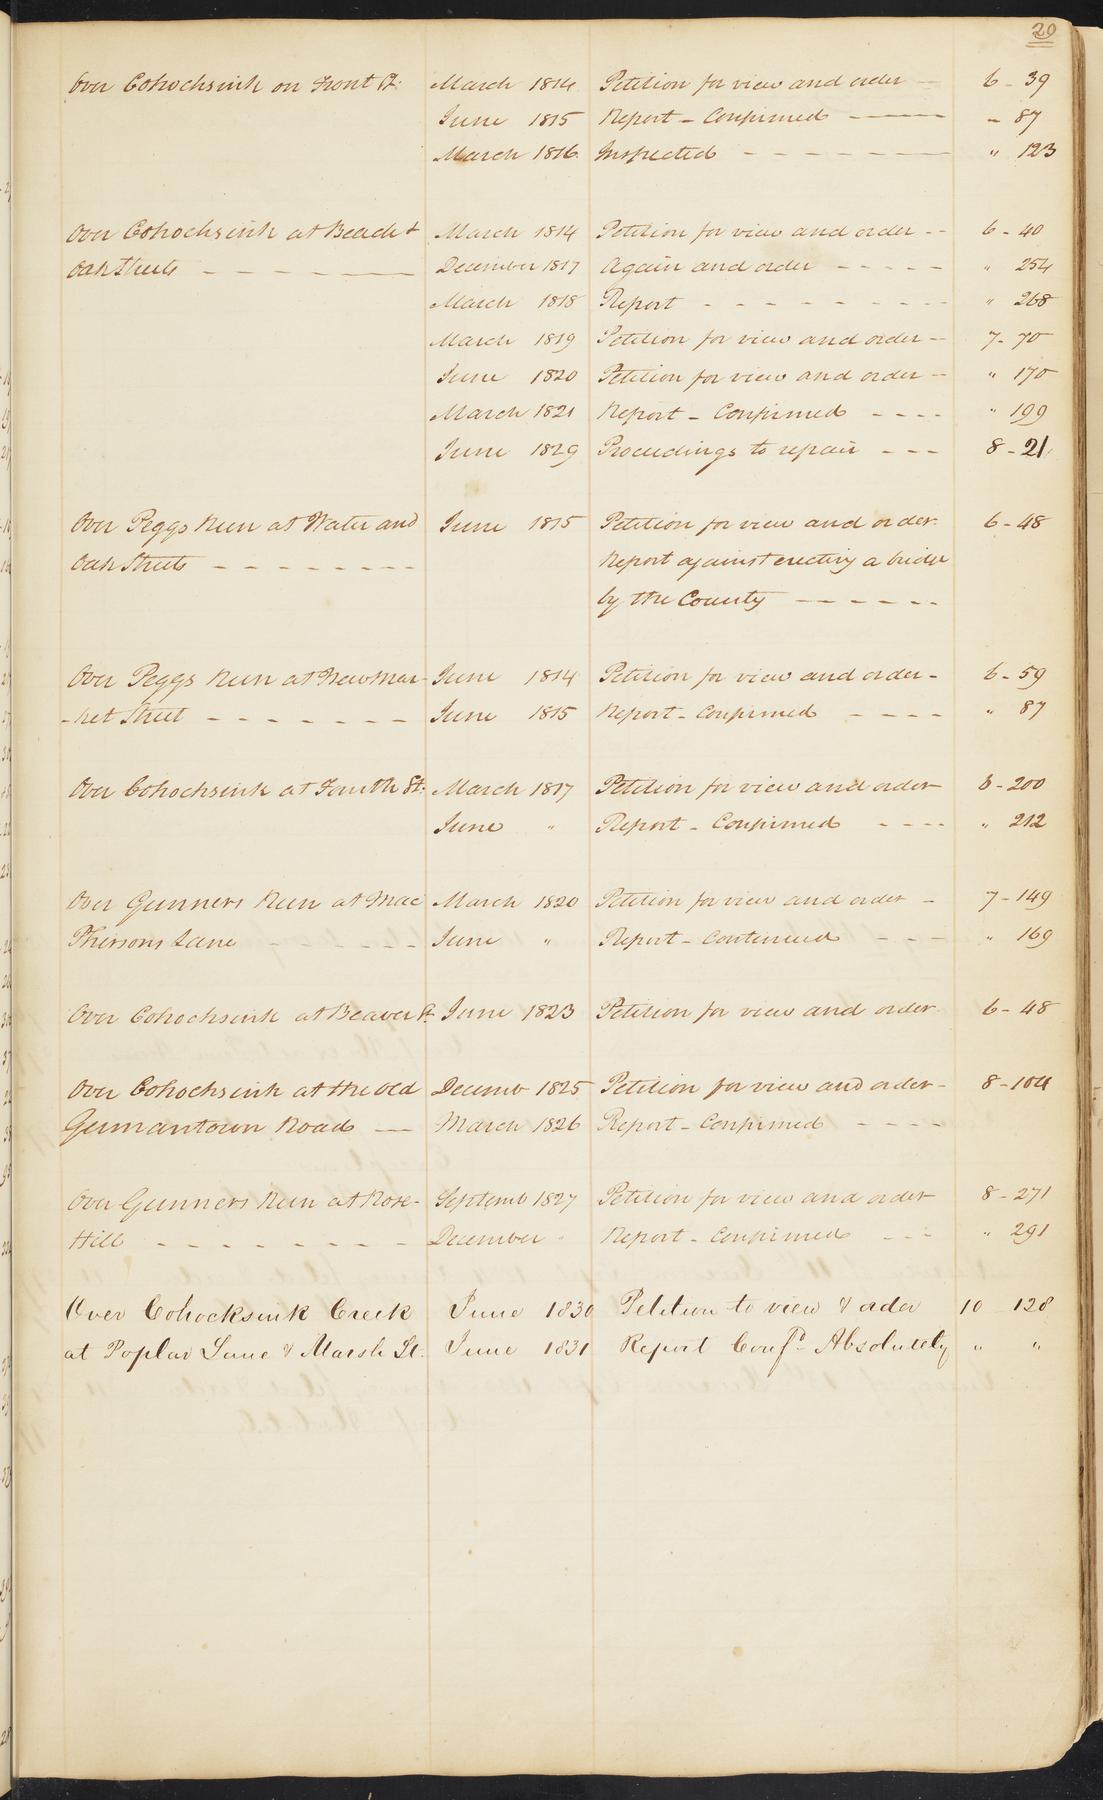 20
Over Cohochsink on Front St. March 1814 Petition for view and order — 6 - 39
June 1815 Report - Confirmed — " 87
March 1816 Inspected - - - - - " 123
Over Cohochsink at Beach & March 1814 Petition for view and order - - 6 - 40
Oak Streets - - - - December 1817 Again and order - - - - - " 254
March 1818 Report - - - - - - - - " 268
March 1819 Petition for view and order - 7 - 70
June 1820 Petition for view and order - " 170
March 1821 Report - Confirmed - - - - " 199
June 1829 Proceedings to repair - - - 8 - 21
Over Peggs Run at Water and June 1815 Petition for view and order. 6 - 48
Oak Streets - - - - - - - - Report against erecting a bridge
by the County - - - - - -
Over Peggs Run at New Mar- June 1814 Petition for view and order - 6 - 59
-ket Street - - - - - - - June 1815 Report - Confirmed - - - - " 87
Over Cohochsink at Fourth St. March 1817 Petition for view and order 6 - 200
June " Report - Confirmed - - - - " 212
Over Gunners Run at Mac March 1820 Petition for view and order - 7 - 149
Phersons Lane - - - - - June " Report - Continued - - - " 169
Over Cohochsink at Beaver St. June 1823 Petition for view and order 6 - 48
Over Cohochsink at the old Decemb 1825 Petition for view and order - 8 - 104
Germantown Road — March 1826 Report - Confirmed - - - -
Over Gunners Run at Rose- Septemb 1827 Petition for view and order 8 - 271
Hill - - - - - - - - December " Report - Confirmed - - - " 291
Over Cohocksink Creek June 1830 Petition to view & order 10 128
at Poplar Lane & Marsh St. June 1831 Report Confd. Absolutely " "